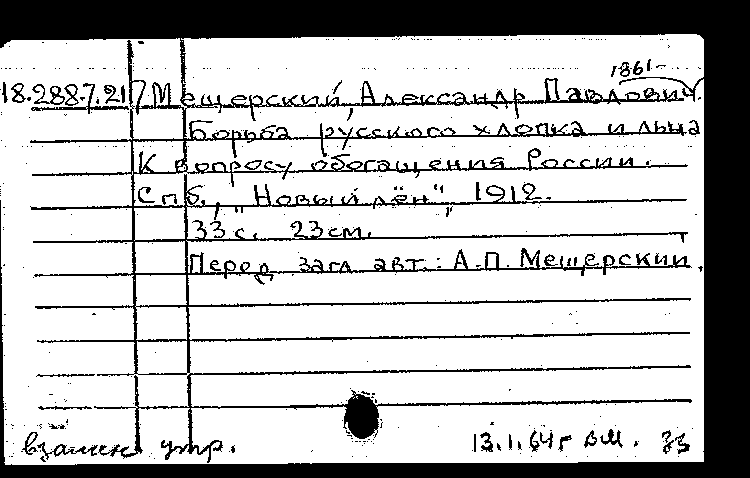 1861-
18.288.7.217 Мещерский, Александр Павлович.
Борьба русского хлопка и льна
К вопросу обогащения России.
Спб., "Новый лён", 1912.
33 с. 23 см.
Перед загл. авт.: А.П. Мещерский.
взамен утр. 13.1.64г ВМ. 33